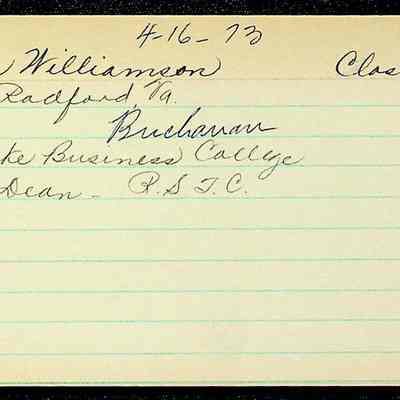 4-16-73
Williamson Clas
Radford, Va.
Buchanan
ke Business College
Dean - R.S.T.C.